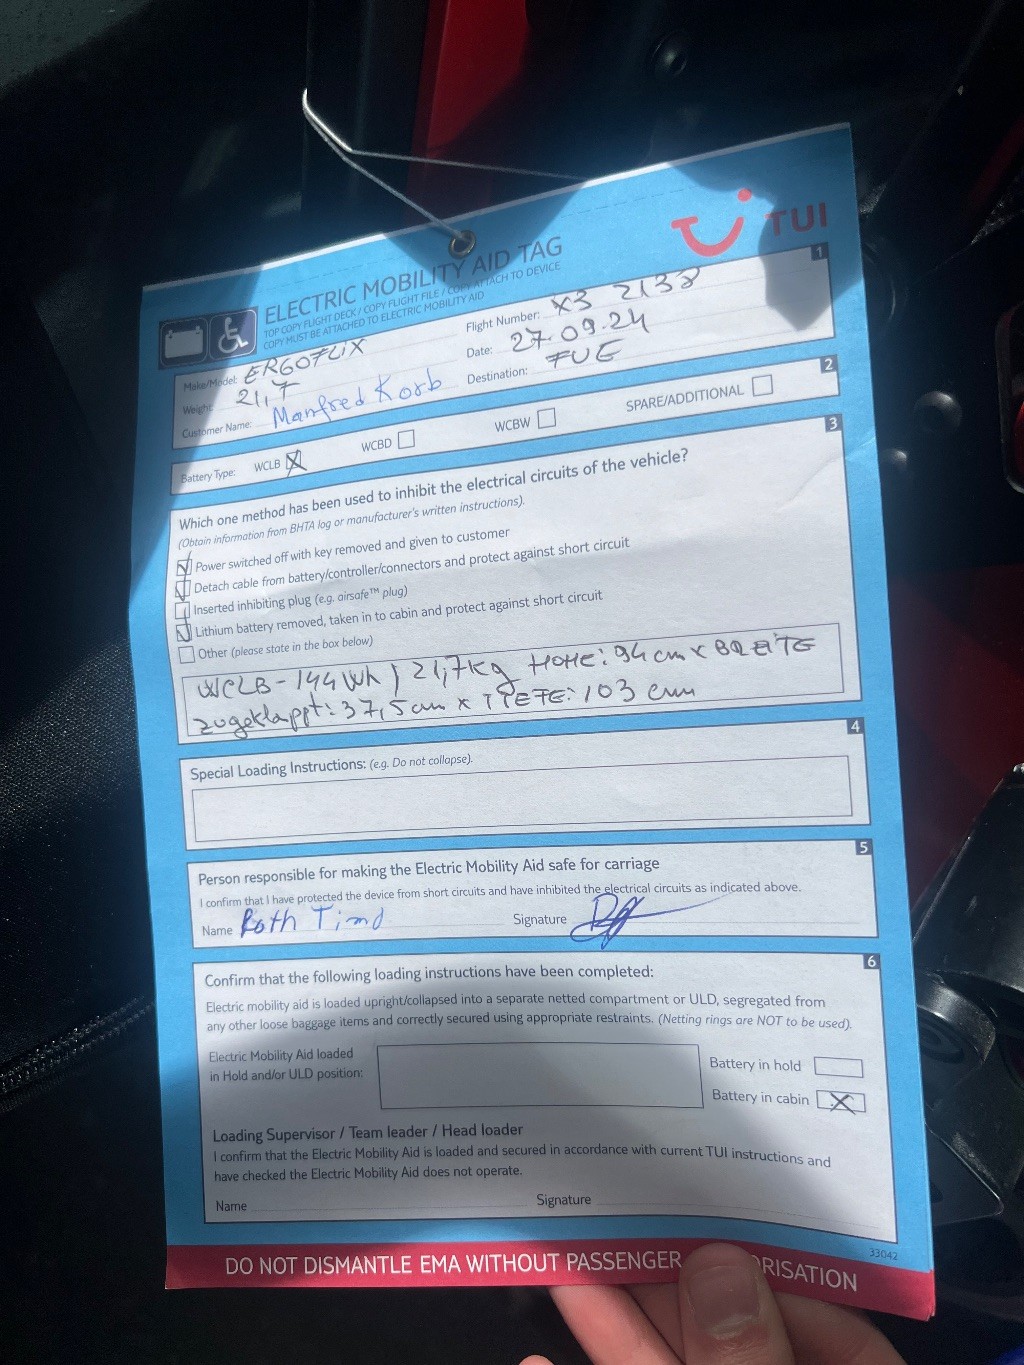 TUI
ELECTRIC MOBILITY AID TAG
TOP COPY FLIGHT DECK / COPY FLIGHT FILE / COPY ATTACH TO DEVICE
COPY MUST BE ATTACHED TO ELECTRIC MOBILITY AID
1
Make/Model: ERGOFLIX
Flight Number: X3 2138
Weight: 21,7
Date: 27.09.24
Customer Name: Manfred Korb
Destination: FUE
2
Battery Type: WCLB WCBD WCBW SPARE/ADDITIONAL
3
Which one method has been used to inhibit the electrical circuits of the vehicle?
(Obtain information from BHTA log or manufacturer's written instructions).
Power switched off with key removed and given to customer
Detach cable from battery/controller/connectors and protect against short circuit
Inserted inhibiting plug (e.g. airsafe™ plug)
Lithium battery removed, taken in to cabin and protect against short circuit
Other (please state in the box below)
WCLB - 144 Wh / 21,7kg HOHE: 94 cm x BREITE
zugeklappt: 37,5 cm x TIEFE: 103 cm
4
Special Loading Instructions: (e.g. Do not collapse).
5
Person responsible for making the Electric Mobility Aid safe for carriage
I confirm that I have protected the device from short circuits and have inhibited the electrical circuits as indicated above.
Name Roth Signature
6
Confirm that the following loading instructions have been completed:
Electric mobility aid is loaded upright/collapsed into a separate netted compartment or ULD, segregated from
any other loose baggage items and correctly secured using appropriate restraints. (Netting rings are NOT to be used).
Electric Mobility Aid loaded
in Hold and/or ULD position:
Battery in hold
Battery in cabin
Loading Supervisor / Team leader / Head loader
I confirm that the Electric Mobility Aid is loaded and secured in accordance with current TUI instructions and
have checked the Electric Mobility Aid does not operate.
Name Signature
33042
DO NOT DISMANTLE EMA WITHOUT PASSENGER ORISATION